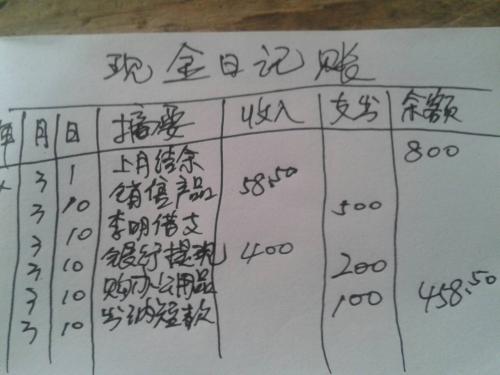 现金日记账
年 月 日 摘要 收入 支出 余额
3 1 上月结余 800
3 10 销售产品 58.50
3 10 李明借支 500
3 10 银行提现 400
3 10 购办公用品 200
3 10 出纳短款 100 458.50